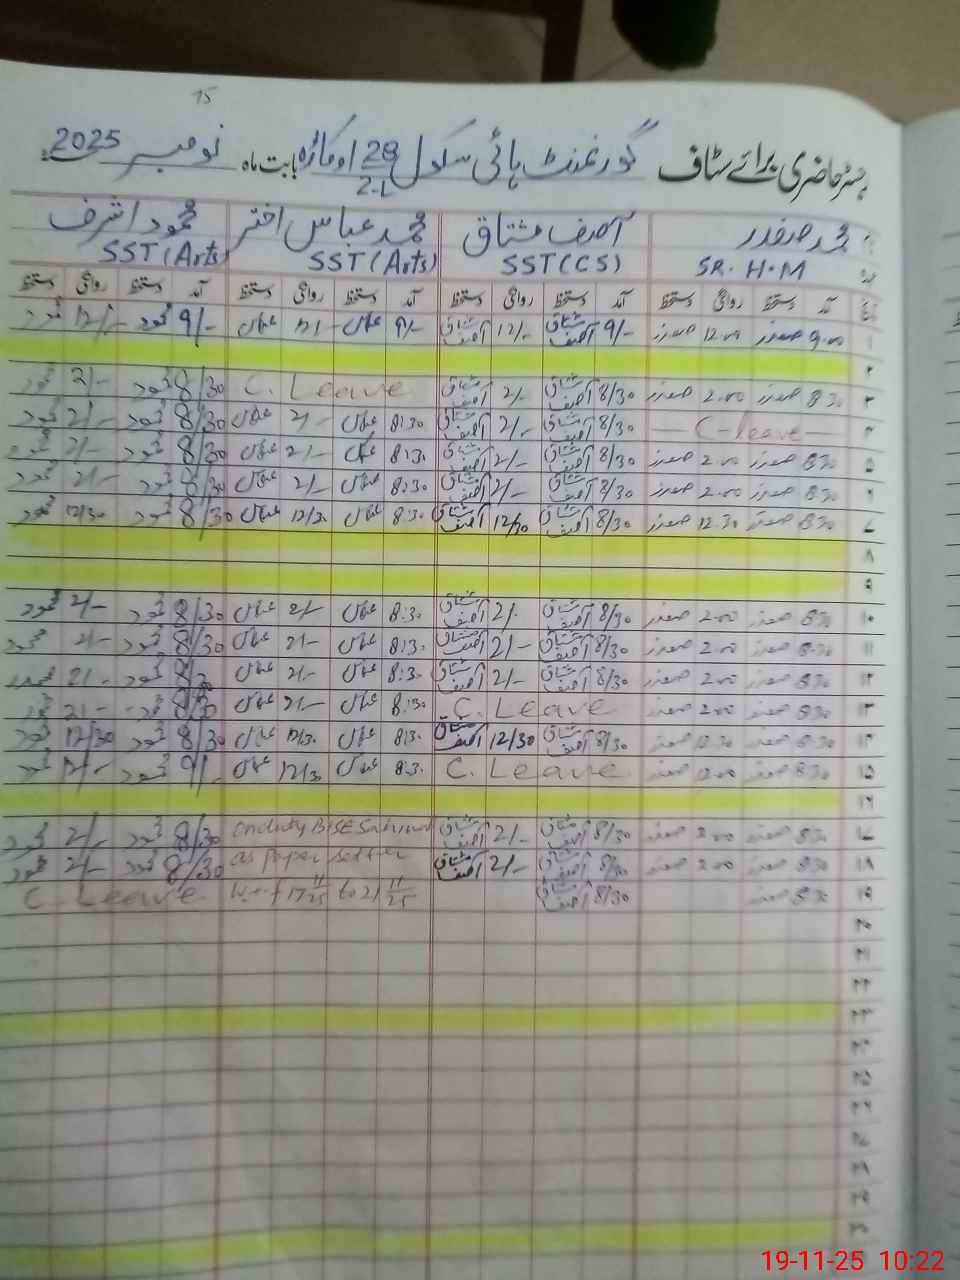 15
رجسٹر حاضری برائے سٹاف گورنمنٹ ہائی سکول 28/2-L اوکاڑہ بابت ماہ نومبر 2025
محمد صفدر آصف مشتاق محمد عباس اختر محمود اشرف
SR. H.M SST(CS) SST(Arts) SST(Arts)
تاریخ آمد دستخط روانگی دستخط آمد دستخط روانگی دستخط آمد دستخط روانگی دستخط آمد دستخط روانگی دستخط
۱ 9.00 صفدر 12.00 صفدر 9/- آصف مشتاق 12/- آصف مشتاق 9/- عباس 12/- عباس 9/- محمود 12/- محمود
۲
۳ 8:30 صفدر 2.00 صفدر 8/30 آصف مشتاق 2/- آصف مشتاق C. Leave 8/30 محمود 2/- محمود
۴ C-leave 8/30 آصف مشتاق 2/- آصف مشتاق 8:30 عباس 2/- عباس 8/30 محمود 2/- محمود
۵ 8:30 صفدر 2.00 صفدر 8/30 آصف مشتاق 2/- آصف مشتاق 8:30 عباس 2/- عباس 8/30 محمود 2/- محمود
۶ 8:30 صفدر 2.00 صفدر 8/30 آصف مشتاق 2/- آصف مشتاق 8:30 عباس 2/- عباس 8/30 محمود 2/- محمود
۷ 8:30 صفدر 12.30 صفدر 8/30 آصف مشتاق 12/30 آصف مشتاق 8:30 عباس 12/30 عباس 8/30 محمود 12/30 محمود
۸
۹
۱۰ 8:30 صفدر 2.00 صفدر 8/30 آصف مشتاق 2/- آصف مشتاق 8:30 عباس 2/- عباس 8/30 محمود 2/- محمود
۱۱ 8:30 صفدر 2.00 صفدر 8/30 آصف مشتاق 2/- آصف مشتاق 8:30 عباس 2/- عباس 8/30 محمود 2/- محمود
۱۲ 8:30 صفدر 2.00 صفدر 8/30 آصف مشتاق 2/- آصف مشتاق 8:30 عباس 2/- عباس 8/30 محمود 2/- محمود
۱۳ 8:30 صفدر 2.00 صفدر C. Leave 8:30 عباس 2/- عباس 8/30 محمود 2/- محمود
۱۴ 8:30 صفدر 12.30 صفدر 8/30 آصف مشتاق 12/30 آصف مشتاق 8:30 عباس 12/30 عباس 8/30 محمود 12/30 محمود
۱۵ 8:30 صفدر صفدر C. Leave 8:30 عباس 12/30 عباس 9/- محمود 12/- محمود
۱۶
۱۷ 8:30 صفدر 2.00 صفدر 8/30 آصف مشتاق 2/- آصف مشتاق On duty BISE Sahiwal 8/30 محمود 2/- محمود
۱۸ 8:30 صفدر 2.00 صفدر 8/30 آصف مشتاق 2/- آصف مشتاق as paper setter 8/30 محمود 2/- محمود
۱۹ 8:30 صفدر 8/30 آصف مشتاق w.e.f 17 11/25 to 21 11/25 C. Leave
۲۰
۲۱
۲۲
۲۳
۲۴
۲۵
۲۶
۲۷
۲۸
۲۹
۳۰
19-11-25 10:22